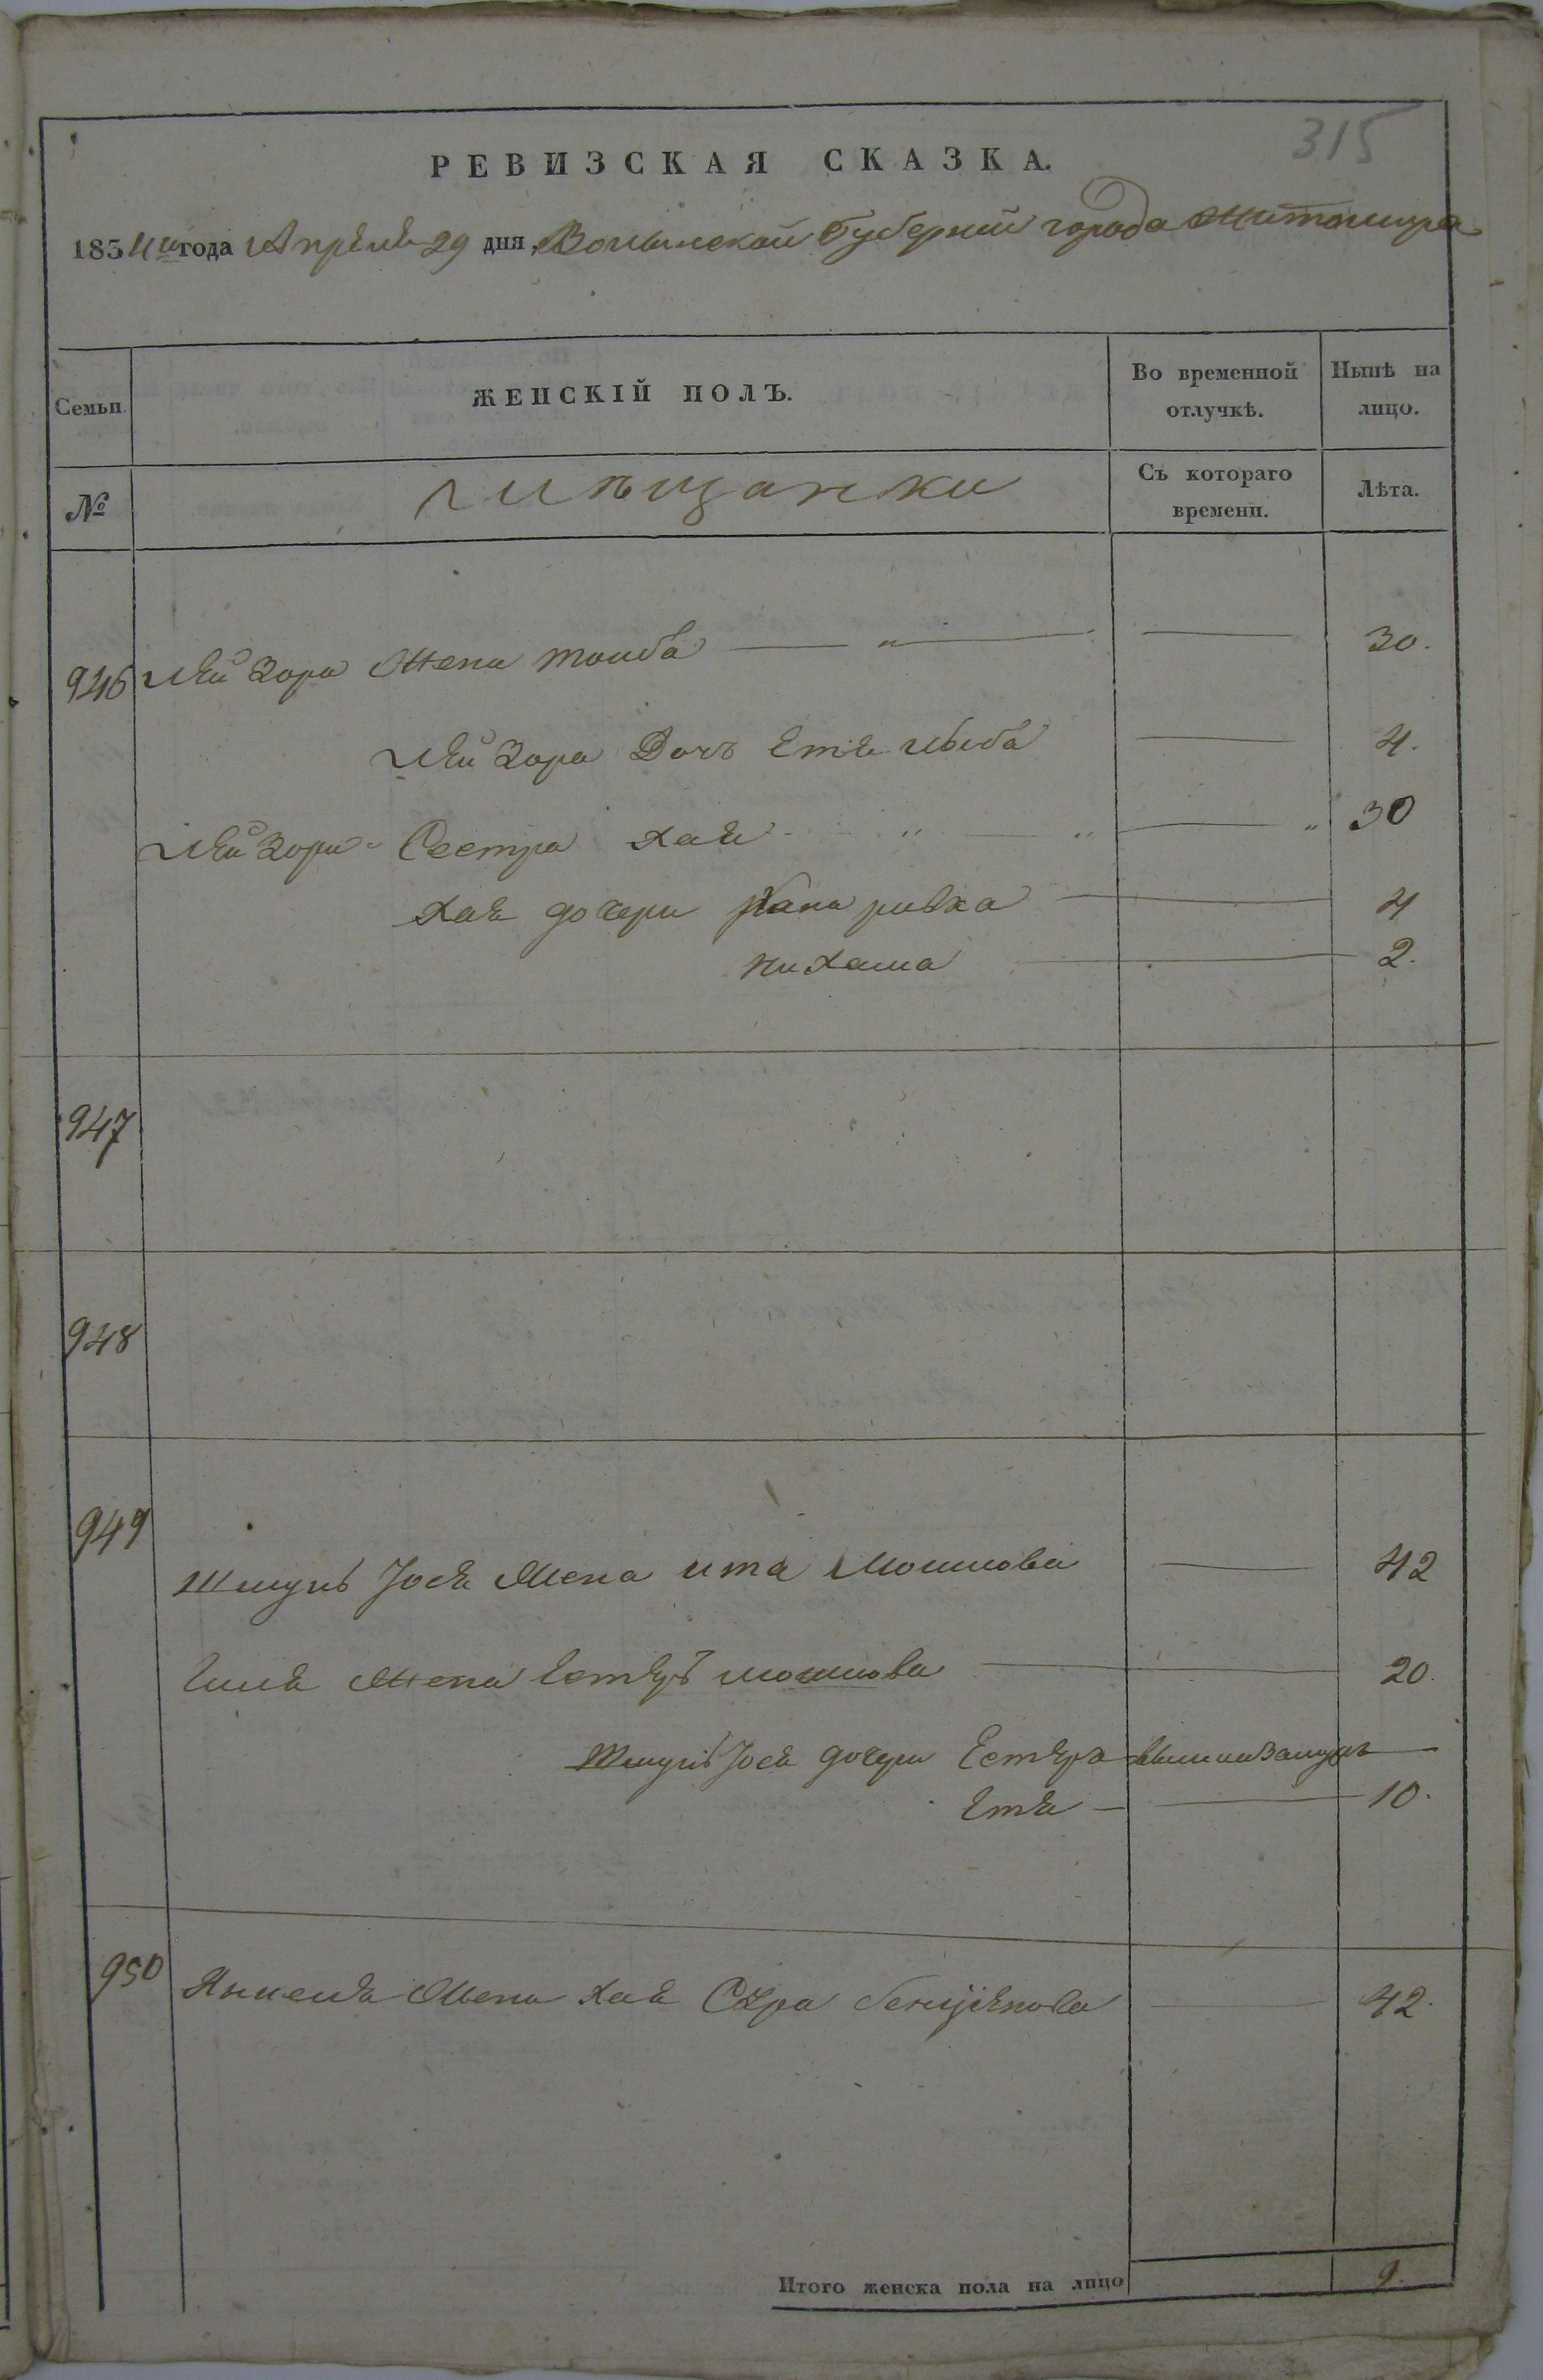 315
РЕВИЗСКАЯ СКАЗКА.
1834го года Апреля 29 дня, Волынской Губернии города Житомира
Семьи. ЖЕНСКІЙ ПОЛЪ. Во временной отлучкѣ. Нынѣ на лицо.
№ мѣщанки Съ котораго времени. Лѣта.
946 Лейзора Жена Тоиба 30.
Лейзора Дочь Етя 4.
Лейзора Сестра Хая 30
Хаи дочери Хана ривка 4
нихама 2.
947
948
949
Шмуль Йося Жена ита Мошкова 42
Жена Естеръ мошкова 20.
Шмуль Йося дочери Естера вышла замужъ
Етя 10.
950 Янкеля Жена Хая Сура 42.
Итого женска пола на лицо 9.